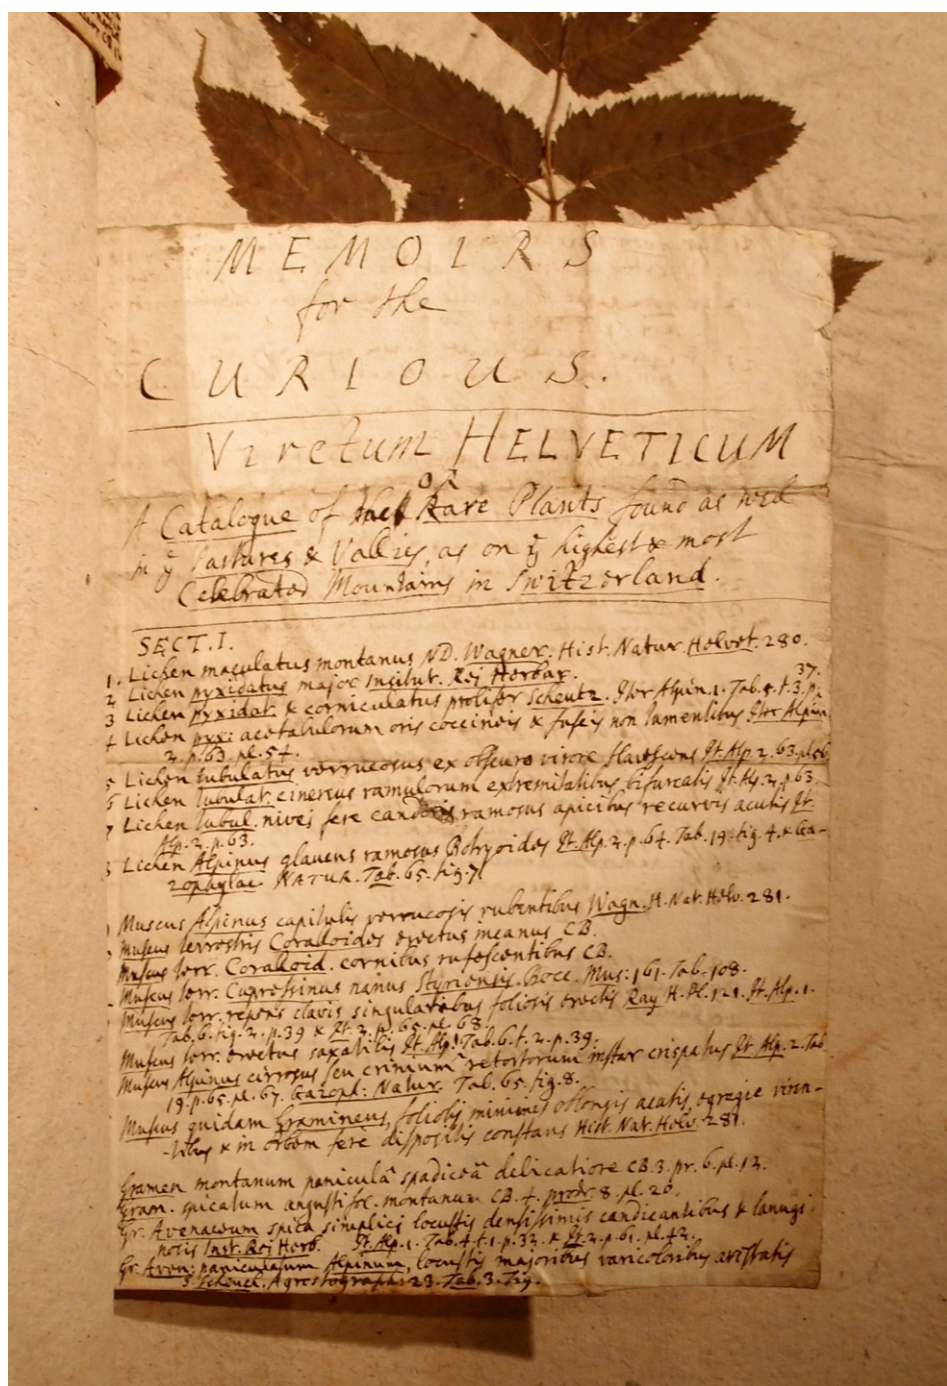 MEMOIRS
for the
CURIOUS.
Viretum HELVETICUM
OR
A Catalogue of Rare Plants found as well
in ye Pastures & Vallies, as on ye highest & most
Celebrated Mountains in Switzerland.
SECT. I.
1. Lichen maculatus montanus ND. Wagner. Hist. Natur. Helvet. 280.
2 Lichen pyxidatus major Institut. Rej Herbar. 37.
3 Lichen pyxidat. & corniculatus prolifer Scheutz. Iter Alpin. 1. Tab. 5. f. 3. p.
4 Lichen pyx: acetabulorum oris coccineis & fuscis non tumentibus Iter Alpin
2. p. 63. pl. 54.
5 Lichen tubulatus verrucosus ex obscuro virore flavescens It. Alp. 2. 63. pl. 56
6 Lichen tubulat. cinereus ramulorum extremitatibus bifurcatis It. Alp. 2. p 63.
7 Lichen tubul. nivei fere candoris ramosus apicibus recurvis acutis It.
Alp. 2. p. 63.
8 Lichen Alpinus glaucus ramosus Botryoides It. Alp. 2. p. 64. Tab. 19. fig. 4. & Ga-
zophylac. NATUR. Tab. 65. fig. 7.
Muscus Alpinus capitulis verrucosis rubentibus Wagn. H. Nat. Helv. 281.
Muscus terrestris Coralloides erectus incanus CB.
Muscus terr. Coralloid. cornibus rufescentibus CB.
Muscus terr. Cupressinus nanus Styriensis. Bocc. Mus: 161. Tab. 108.
Muscus terr. repens clavis singularibus foliosis erectis Ray H. Pl. 121. It. Alp. 1.
Tab. 6. fig. 2. p. 39 & It. 2. p. 65. pl. 68.
Muscus terr. erectus saxatilis It. Alp. 1 Tab. 6. f. 2. p. 39.
Muscus Alpinus cirrosus seu crinium retortorum instar crispatus It. Alp. 2. Tab
19. p. 65. pl. 67. Gazoph: Natur. Tab. 65. fig. 8.
Muscus quidam Gramineus, foliolis minimis oblongis acutis, egregie viren-
-tibus & in orbem fere dispositis constans Hist. Nat. Helv. 281.
Gramen montanum paniculâ spadiceâ delicatiore CB. 3. pr. 6. pl. 12.
Gram. spicatum angustifol. montanum CB. 4. prodr. 8. pl. 20.
Gr. Avenaceum spica simplici locustis densissimis candicantibus & lanugi-
nosis Inst. Rej Herb. It. Alp. 1. Tab. 4. f. 1. p. 32. & It. 2. p. 61. pl. 42.
Gr. Aven: paniculatum Alpinum, locustis majoribus varicoloribus aristatis
Scheuch. Agrostograph: 23. Tab. 3. Fig.